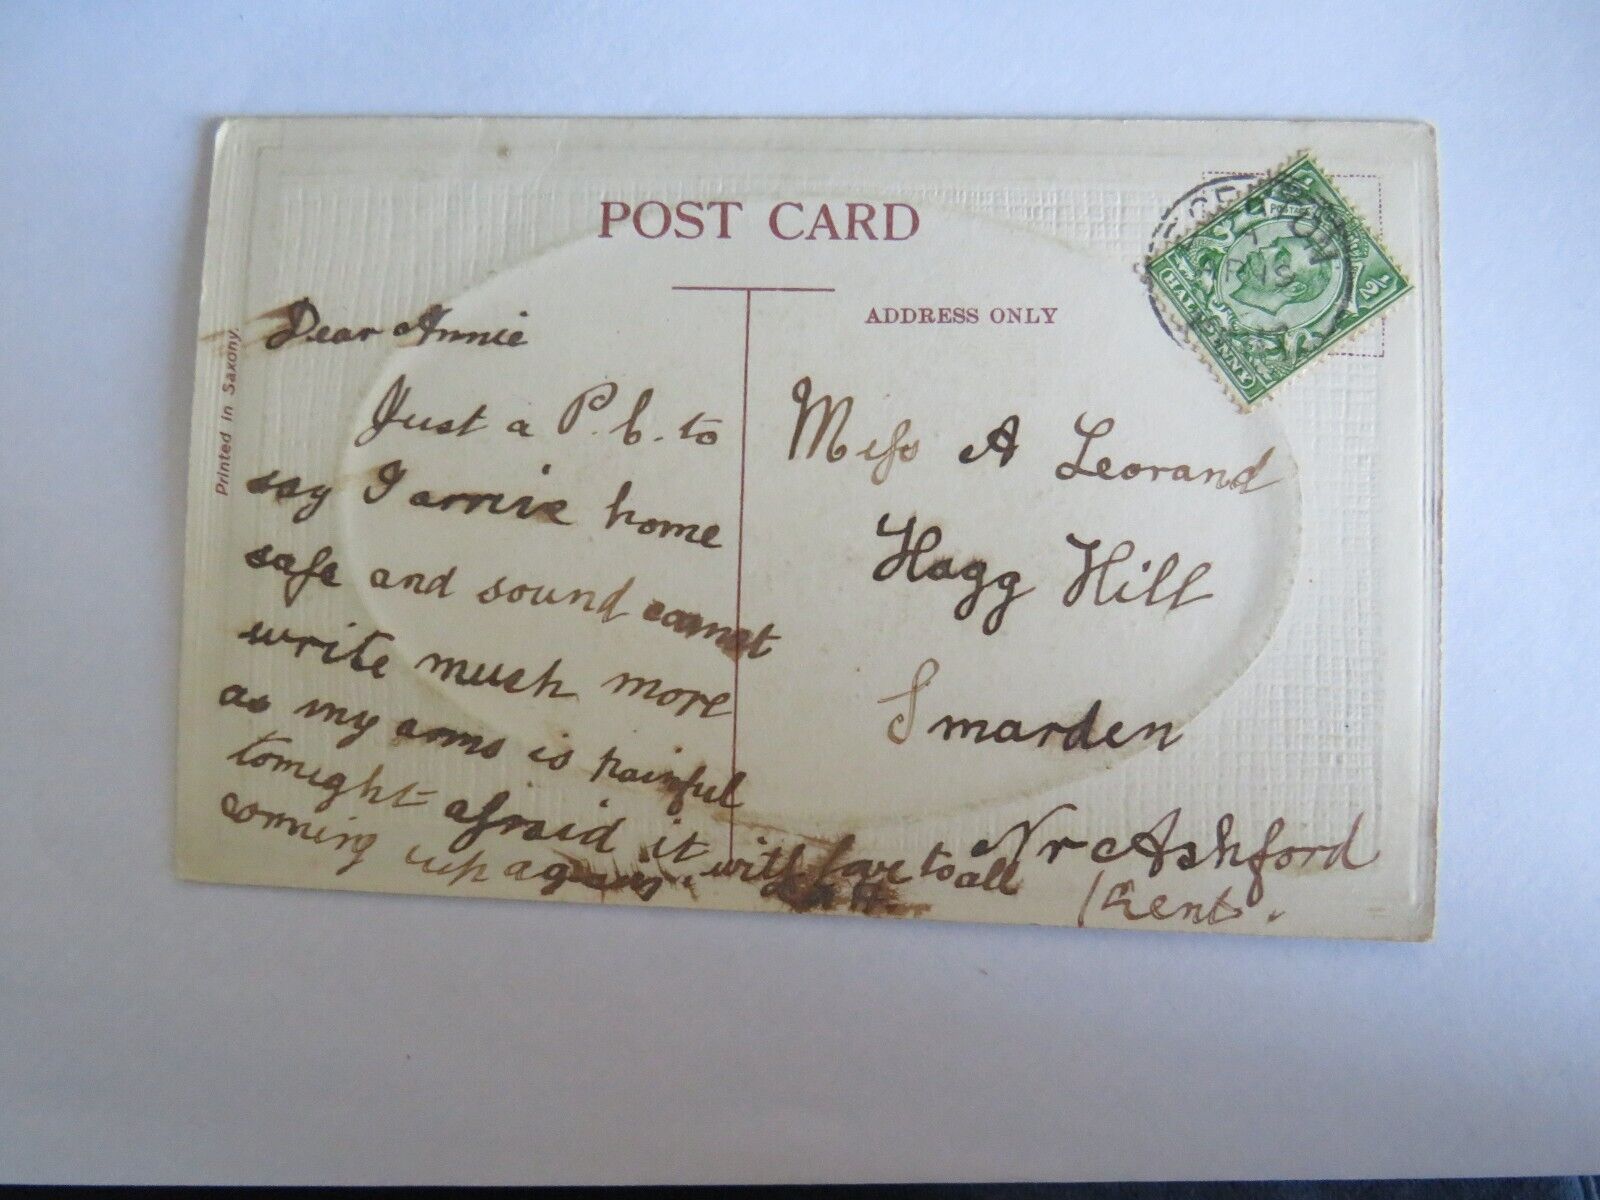 POST CARD
Printed in Saxony
ADDRESS ONLY
POSTAGE
HALFPENNY
½
Dear Annie
Just a P.C. to
say I arrive home
safe and sound cannot
write much more
as my arms is painful
tonight afraid it
coming up again. with love to all
Miss A
Hagg Hill
Smarden
Nr Ashford
Kent.